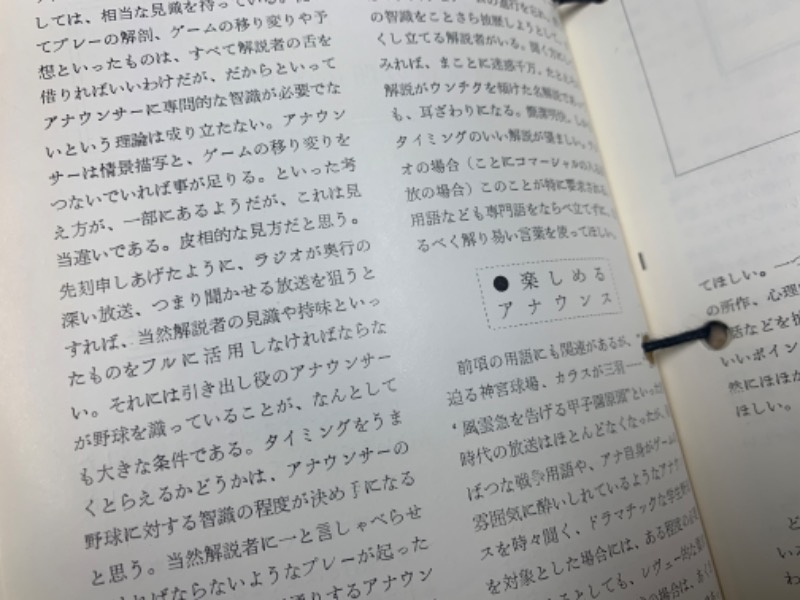 しては、相当な見識を持っている。
てプレーの解剖、ゲームの移り変りや予
想といったものは、すべて解説者の舌を
借りればいいわけだが、だからといって
アナウンサーに専問的な智識が必要でな
いという理論は成り立たない。アナウン
サーは情景描写と、ゲームの移り変りを
つないでいれば事が足りる。といった考
え方が、一部にあるようだが、これは見
当違いである。皮相的な見方だと思う。
先刻申しあげたように、ラジオが奥行の
深い放送、つまり聞かせる放送を狙うと
すれば、当然解説者の見識や持味といっ
たものをフルに活用しなければならな
い。それには引き出し役のアナウンサー
が野球を識っていることが、なんとして
も大きな条件である。タイミングをうま
くとらえるかどうかは、アナウンサーの
野球に対する智識の程度が決め手になる
と思う。当然解説者に一と言しゃべらせ
ればならないようなプレーが起った
するアナウン
の智識をことさら披歴しようとして
くし立てる解説者がいる。聞く方に
みれば、まことに迷惑千万。たとえ
解説がウンチクを傾けた名解説であっ
も、耳ざわりになる。簡潔明快、
タイミングのいい解説が望ましい。
オの場合（ことにコマーシャルの
放の場合）このことが特に要求される
用語なども専門語をならべ立てずに、
るべく解り易い言葉を使ってほしい。
●楽しめる
アナウンス
前項の用語にも関連があるが、
迫る神宮球場、カラスが三羽――
“風雲急を告げる甲子園原頭”といった
時代の放送はほとんどなくなったが、
ばつな戦争用語や、アナ自身がゲーム
雰囲気に酔いしれているようなアナウ
スを時々聞く、ドラマチックな学生野
を対象とした場合には、ある程度
るとしても、レヴュー的な
の場合は、
てほしい。一つ
の所作、心理
話などを
いいポイン
然にほほ
ほしい。
ど
いえ
わ